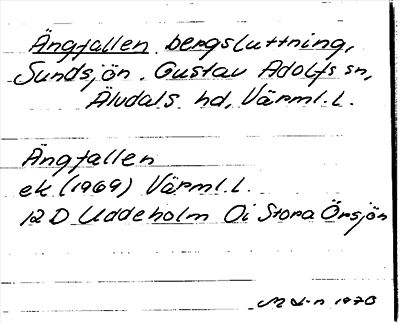 Ängfallen, bergsluttning,
Sundsjön. Gustav Adolfs sn,
Älvdals hd, Värml. l.
Ängfallen
ek (1969) Värml. l.
12 D Uddeholm Oi Stora Örsjön
1970